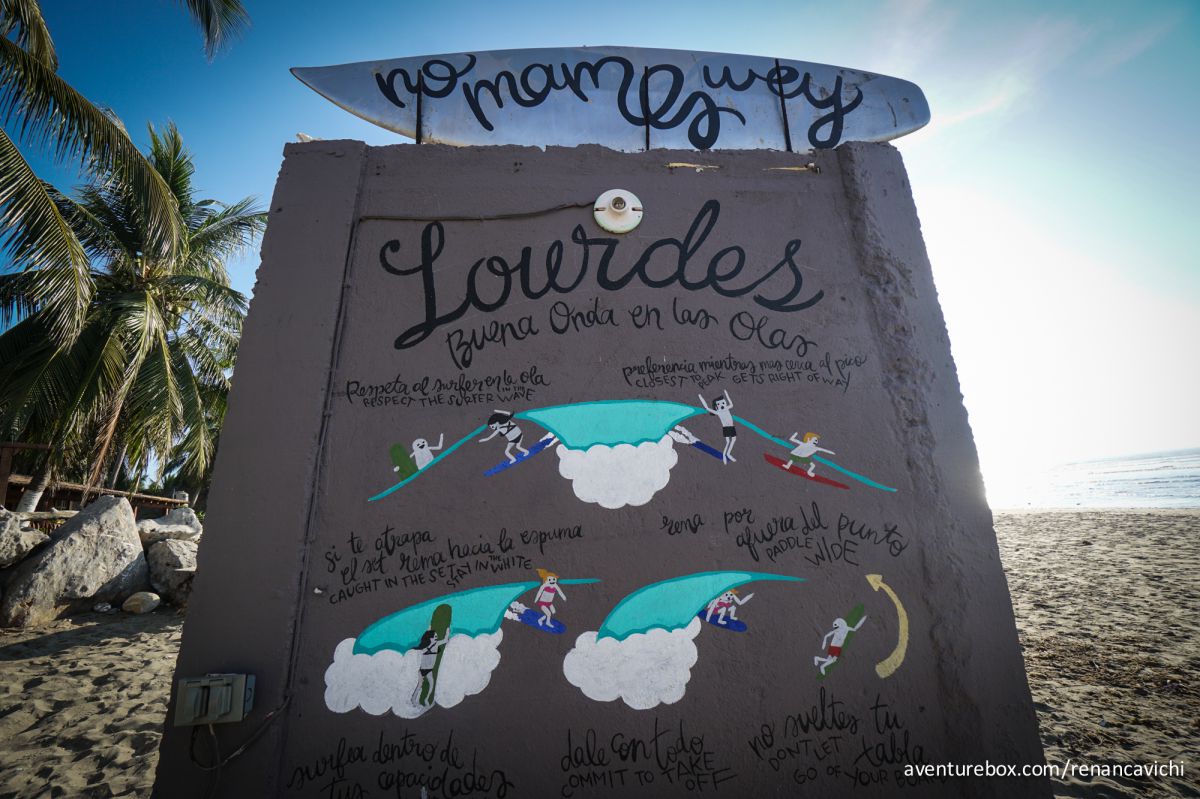 no mames wey
Lourdes
Buena Onda en las Olas
Respeta al surfer en la ola
RESPECT THE SURFER IN THE WAVE
preferencia mientras mas cerca al pico
CLOSEST TO PEAK GETS RIGHT OF WAY
si te atrapa
el set rema hacia la espuma
CAUGHT IN THE SET STAY IN THE WHITE
rema por
afuera del punto
PADDLE WIDE
surfea dentro de
tus capacidades
dale con todo
COMMIT TO TAKE
OFF
no sueltes tu
tabla
DONT LET
GO OF YOUR
aventurebox.com/renancavichi